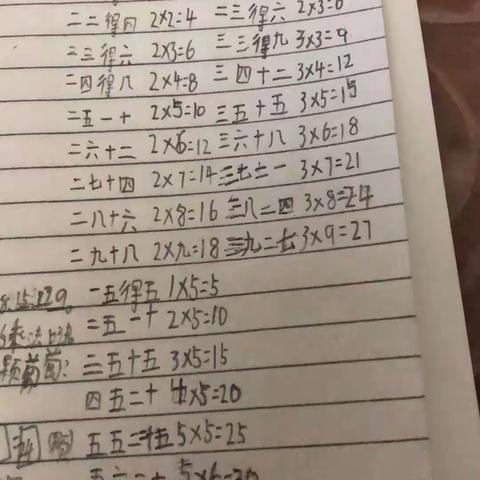 二二得四 2×2=4 二三得六 2×3=6
二三得六 2×3=6 三三得九 3×3=9
二四得八 2×4=8 三四十二 3×4=12
二五一十 2×5=10 三五十五 3×5=15
二六十二 2×6=12 三六十八 3×6=18
二七十四 2×7=14 三七二一 3×7=21
二八十六 2×8=16 三八二四 3×8=24
二九十八 2×九=18 三九二七 3×9=27
一五得五 1×5=5
二五一十 2×5=10
三五十五 3×5=15
四五二十 4×5=20
五五二十五 5×5=25
五六三十 5×6=30